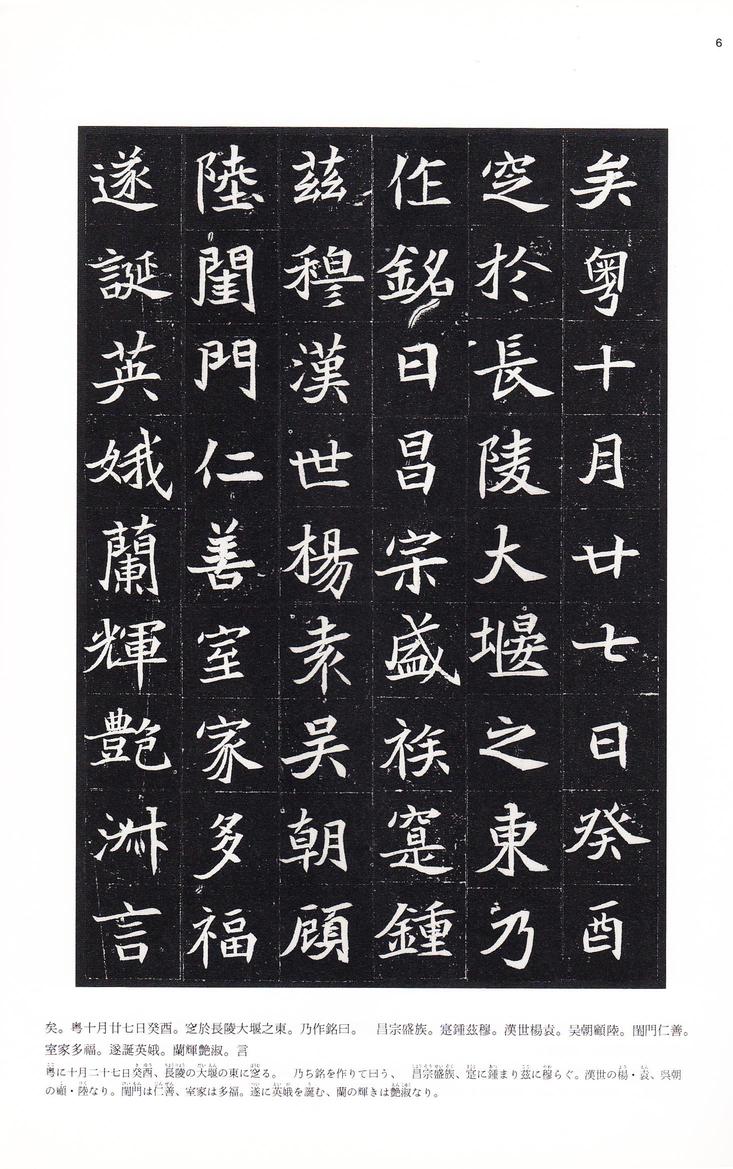 6
矣粤十月廿七日癸酉
窆於長陵大堰之東乃
作銘曰昌宗盛族寔鍾
茲穆漢世楊袁吴朝顧
陸閨門仁善室家多福
遂誕英娥蘭輝艷淋言
矣。粤十月廿七日癸酉。窆於長陵大堰之東。乃作銘曰。　昌宗盛族。寔鍾茲穆。漢世楊袁。吴朝顧陸。閨門仁善。
室家多福。遂誕英娥。蘭輝艶淑。言
粤に十月二十七日癸酉、長陵の大堰の東に窆る。　乃ち銘を作りて曰う、　昌宗盛族、寔に鍾まり茲に穆らぐ。漢世の楊・袁、呉朝
の顧・陸なり。閨門は仁善、室家は多福。遂に英娥を誕む、蘭の輝きは艶淑なり。